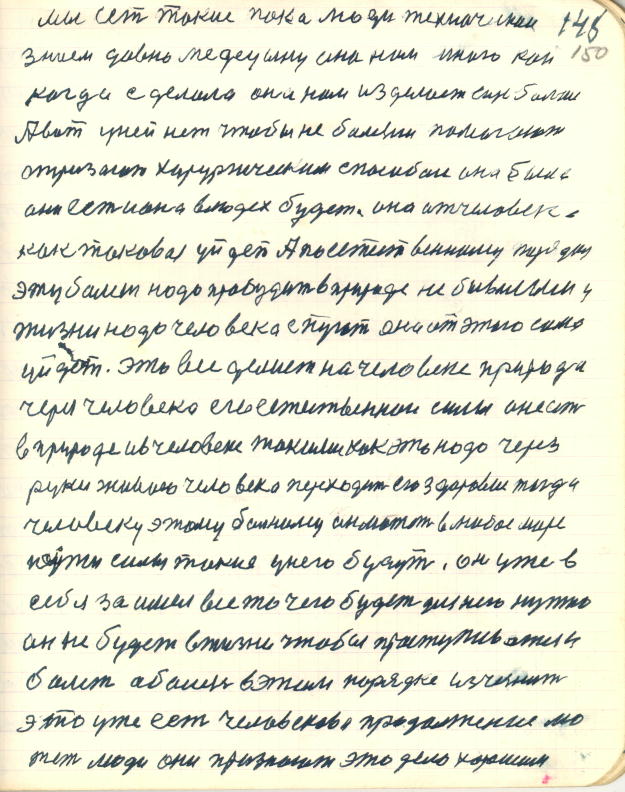 мы ест такие пока люди технически 145
знаем давно медецыну она нам много кои 150
когда сделала она нам изделает
А вот у ней нет чтобы не болели помогают
отрезают хирургическим способом она была
она ест и она в людех будет. она от человек
как таковая уйдет А по естественному порядку
эту болет надо пробудит в природе не бывалыи у
жизни надо человека спугат она от этого сама
уйдет. это все делиет на человеке природа
через человека его естественнои силы они ест
в природе и в человеке такими как это надо через
руки живого человека переходит его здоровие тогда
человеку этому больному он может в любое море
пойти силы такие у него будут. он уже в
себя заимел все то чего будет для него нужно
он не будет в жизни чтобы простудился или
болет а болезн в этом порядке изчезнит
это уже ест человекова продолжение мо
жет люди они признают это дело хорошим